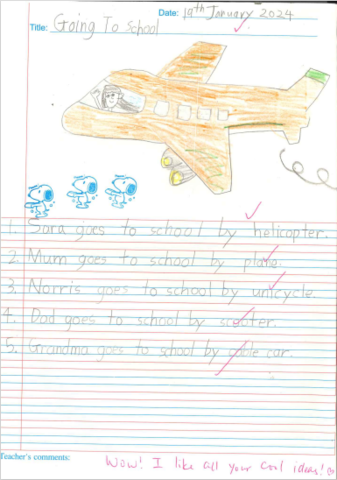 Date: 19th January 2024
Title: Going To School
1. Sara goes to school by helicopter.
2. Mum goes to school by plane.
3. Norris goes to school by unicycle.
4. Dad goes to school by scooter.
5. Grandma goes to school by cable car.
Teacher's comments: Wow! I like all your cool ideas!